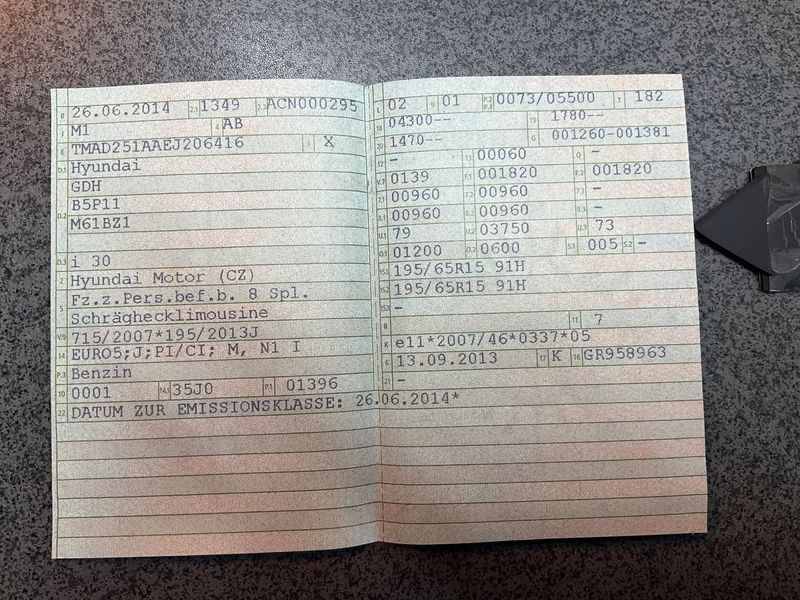 B 26.06.2014 2.1 1349 2.2 ACN000295
J M1 4 AB
E TMAD251AAEJ206416 3 X
D.1 Hyundai
GDH
D.2 B5P11
M61BZ1
D.3 i 30
2 Hyundai Motor (CZ)
5 Fz.z.Pers.bef.b. 8 Spl.
Schräghecklimousine
V.9 715/2007*195/2013J
14 EURO5;J;PI/CI; M, N1 I
P.3 Benzin
10 0001 14.1 35J0 P.1 01396
22 DATUM ZUR EMISSIONSKLASSE: 26.06.2014*
L 02 9 01 P.2 P.4 0073/05500 T 182
18 04300-- 19 1780--
20 1470-- G 001260-001381
12 - 13 00060 Q -
V.7 0139 F.1 001820 F.2 001820
7.1 00960 7.2 00960 7.3 -
8.1 00960 8.2 00960 8.3 -
U.1 79 U.2 03750 U.3 73
O.1 01200 O.2 0600 S.1 005 S.2 -
15.1 195/65R15 91H
15.2 195/65R15 91H
15.3 -
R 11 7
K e11*2007/46*0337*05
6 13.09.2013 17 K 16 GR958963
21 -